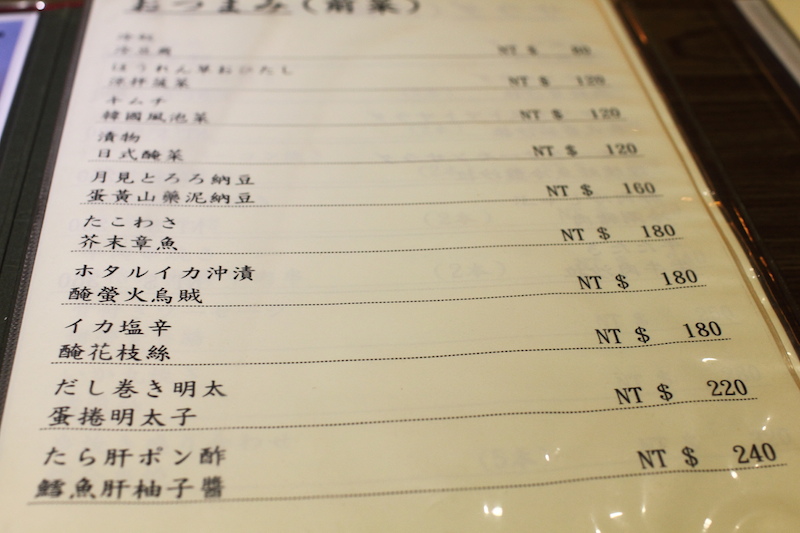 おつまみ(前菜)
冷奴
冷豆腐 NT $ 80
ほうれん草おひたし
涼拌菠菜 NT $ 120
キムチ
韓國風泡菜 NT $ 120
漬物
日式醃菜 NT $ 120
月見とろろ納豆
蛋黃山藥泥納豆 NT $ 160
たこわさ
芥末章魚 NT $ 180
ホタルイカ沖漬
醃螢火烏賊 NT $ 180
イカ塩辛
醃花枝絲 NT $ 180
だし巻き明太
蛋捲明太子 NT $ 220
たら肝ポン酢
鱈魚肝柚子醬 NT $ 240